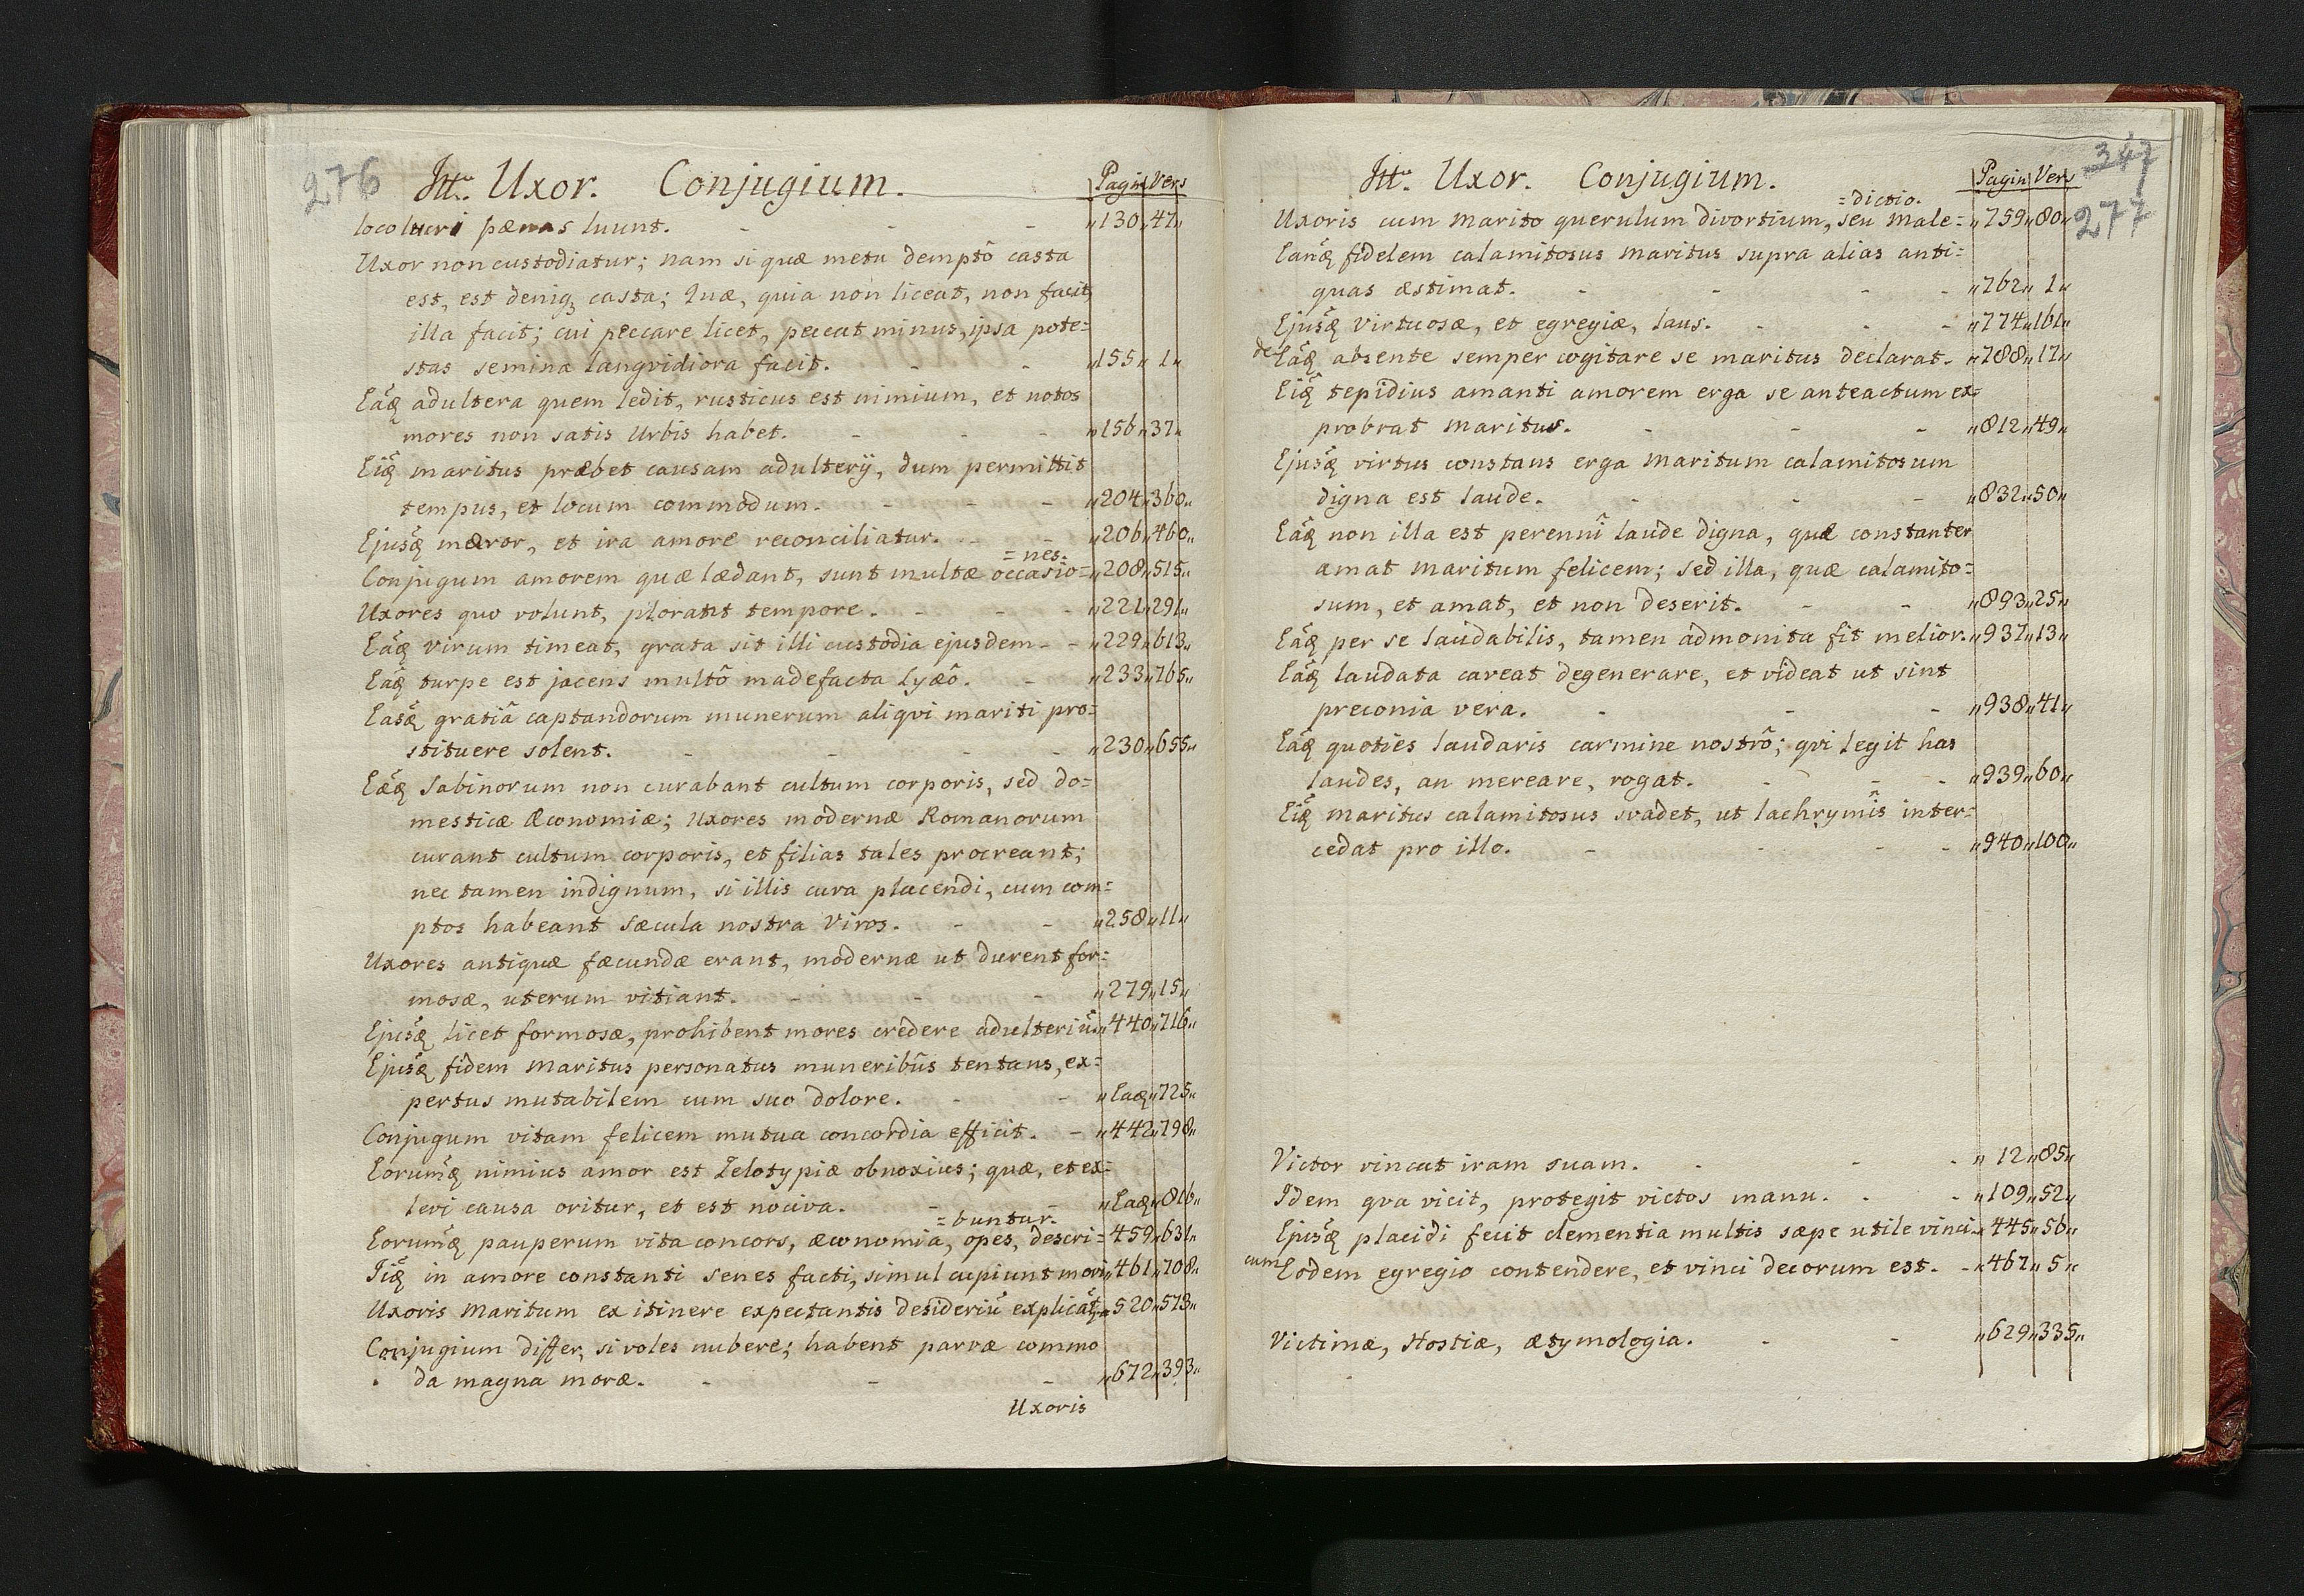 276 Itt. Uxor. Conjugium. Pagin Vers
loco lucri pænas luunt. - - - „130„47„
Uxor non custodiatur; nam si quæ metu demptô casta
est, est deniq; casta; Quæ, quia non liceat, non facit,
illa facit; cui peccare licet, peccat minus, ipsa pote=
stas semina langvidiora facit. - - „155„1„
Eâq adultera quem ledit, rusticus est nimium, et notos
mores non satis Urbis habet. - - - „156„37„
Eiq maritus præbet causam adulterÿ, dum permittit
tempus, et locum commodum. - - - „204„360„
Ejusq mæror, et ira amore reconciliatur. - - „206„460„
=nes.
Conjugum amorem quæ lædant, sunt multæ occasio= „208„515„
Uxores quo volunt, plorant tempore. - - - „221„291„
Eaq virum timeat, grata sit illi custodia ejusdem - - „229„613„
Eaq turpe est jacens multô madefacta Lyæô. - „233„765„
Easq gratiâ captandorum munerum aliqvi mariti pro=
stituere solent. - - - - „230„655„
Eæq Sabinorum non curabant cultum corporis, sed do=
mesticæ Æconomiæ; Uxores modernæ Romanorum
curant cultum corporis, et filias tales procreant;
nec tamen indignum, si illis cura placendi, cum com=
ptos habeant sæcula nostra Viros. - - „258„11„
Uxores antiquæ fæcundæ erant, modernæ ut durent for=
mosæ, uterum vitiant. - - - „279„15„
Ejusq licet formosæ, prohibent mores credere adulteriũ „440„716„
Ejusq fidem Maritus personatus muneribûs tentans, ex=
pertus mutabilem cum suo dolore. - - „Eaq„725„
Conjugum vitam felicem mutua concordia efficit. - „442„790„
Eorumq nimius amor est Zelotypiæ obnoxius; quæ, et ex=
levi causa oritur, et est nociva. - - „Eaq„816„
=buntur.
Eorumq pauperum vita concors, æconomia, opes, descri= 459„631„
Iiq in amore constanti senes facti, simul cupiunt mori „461„708„
Uxoris Maritum ex itinere expectantis desideriũ explicat „520„573„
Conjugium differ, si voles nubere; habent parvæ commo
da magna moræ. - - - „672„393„
Uxoris
Itt. Uxor. Conjugium. Pagin Vers 347
277
=dictio.
Uxoris cum Marito querulum divortium, seu Male= „759„80„
Eanq fidelem calamitosus maritus supra alias anti=
quas æstimat. - - - - „762„1„
Ejusq virtuosæ, et egregiæ, laus. - - - „774„161„
de Eâq absente semper cogitare se maritus declarat. - „788„17„
Eiq tepidius amanti amorem erga se anteactum ex=
probrat Maritus. - - - „812„49„
Ejusq virtus constans erga Maritum calamitosum
digna est laude. - - - „832„50„
Eaq non illa est perennî laude digna, quæ constanter
amat maritum felicem; sed illa, quæ calamito=
sum, et amat, et non deserit. - - „893„25„
Eaq per se laudabilis, tamen admonita fit melior. „937„13„
Eaq laudata careat degenerare, et videat ut sint
preconia vera. - - - „938„41„
Eaq quoties laudaris carmine nostrô; qvi legit has
laudes, an mereare, rogat. - - - „939„60„
Eiq maritus calamitosus svadet, ut lachrymîs inter=
cedat pro illo. - - - - „940„100„
Victor vincat iram suam. - - - „12„85„
Idem qva vicit, protegit victos manu. - - „109„52„
Ejusq placidi fecit clementia multis sæpe utile vinci „445„56„
cum Eodem egregio contendere, et vinci decorum est. - „467„5„
Victimæ, Hostiæ, ætymologia. - - „629„335„